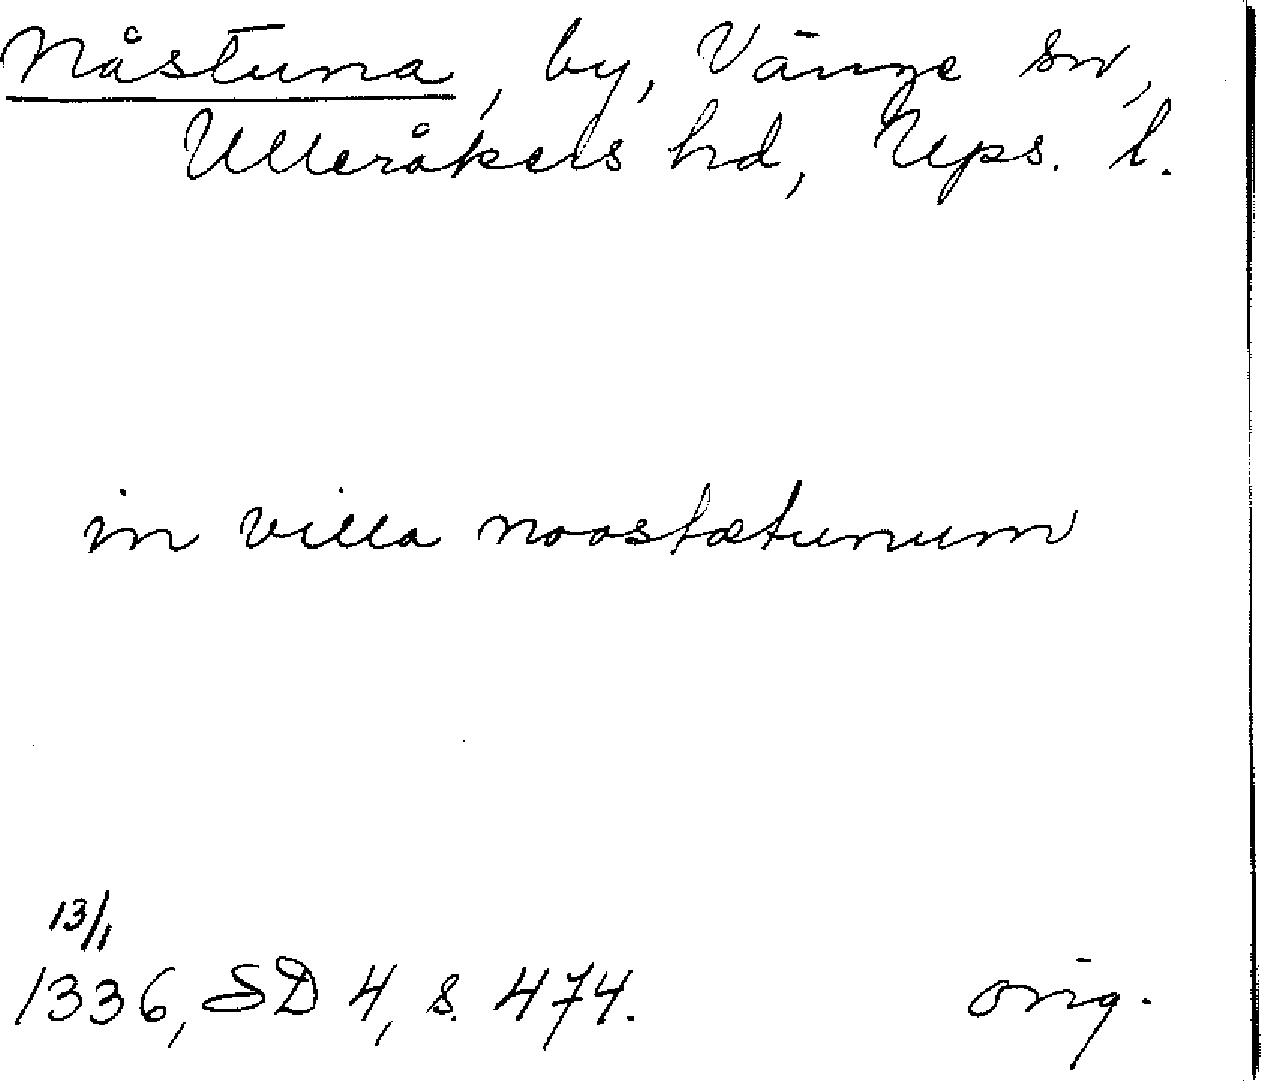 Nåstuna, by, Vänge sn,
Ulleråkers hd, Ups. l.
in villa noostætunum
13/1
1336, SD 4, s. 474. orig.